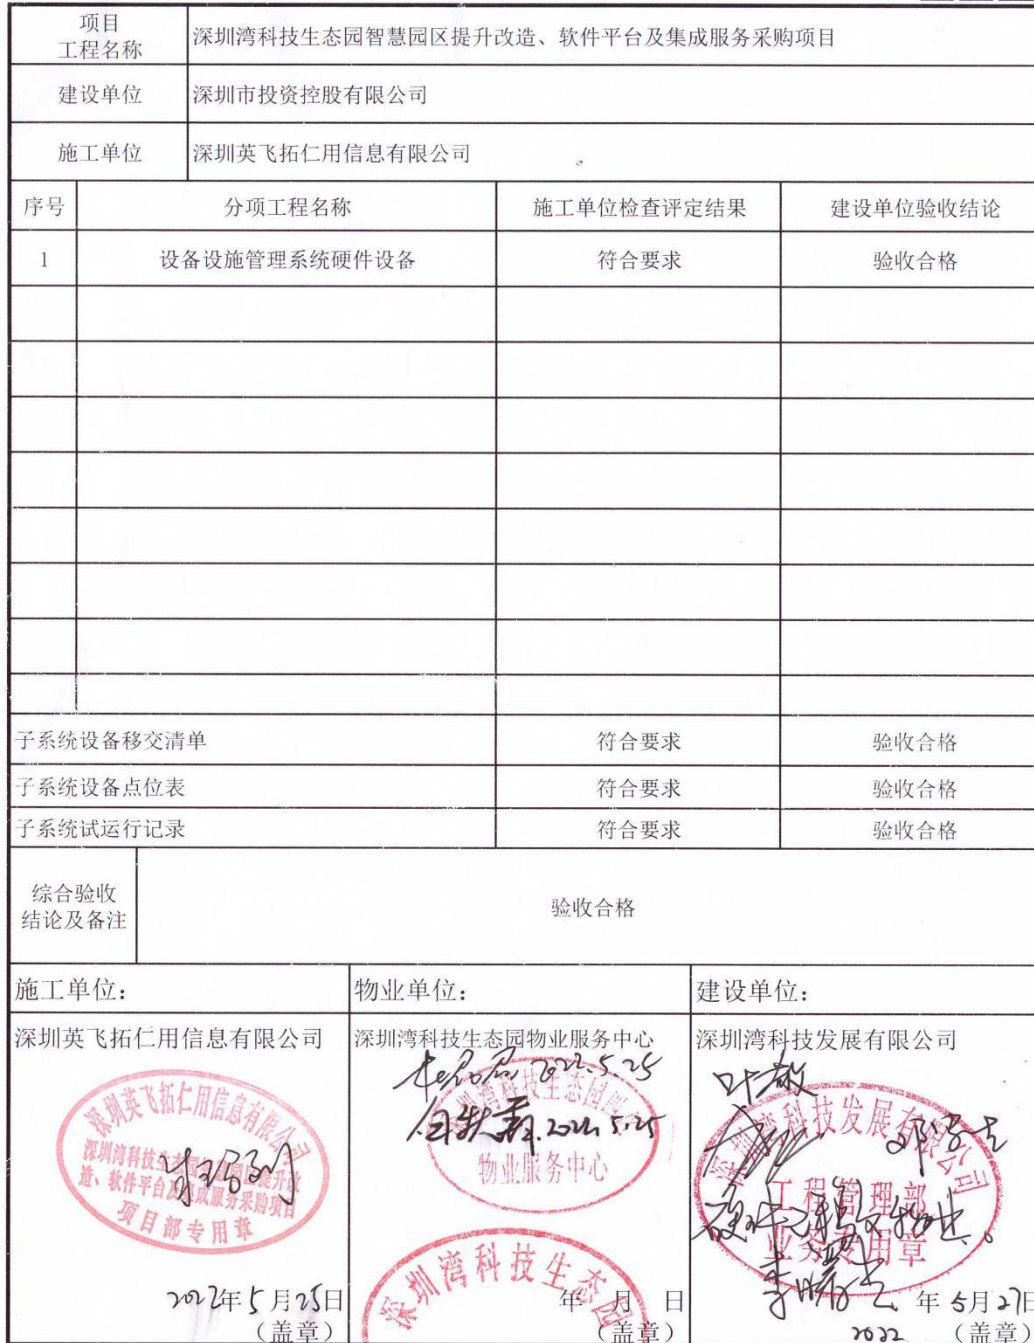 项目
工程名称
深圳湾科技生态园智慧园区提升改造、软件平台及集成服务采购项目
建设单位
深圳市投资控股有限公司
施工单位
深圳英飞拓仁用信息有限公司
序号 分项工程名称 施工单位检查评定结果 建设单位验收结论
1 设备设施管理系统硬件设备 符合要求 验收合格
子系统设备移交清单 符合要求 验收合格
子系统设备点位表 符合要求 验收合格
子系统试运行记录 符合要求 验收合格
综合验收
结论及备注
验收合格
施工单位：
深圳英飞拓仁用信息有限公司
深圳英飞拓仁用信息有限公司
深圳湾科技生态园智慧园区提升改
造、软件平台及集成服务采购项目
项目部专用章
2022年5月25日
（盖章）
物业单位：
深圳湾科技生态园物业服务中心
2022.5.25
2022.5.25
物业服务中心
深圳湾科技生态园
年 月 日
（盖章）
建设单位：
深圳湾科技发展有限公司
深圳湾科技发展有限公司
工程管理部
业务专用章
年5月27日
2022
（盖章）